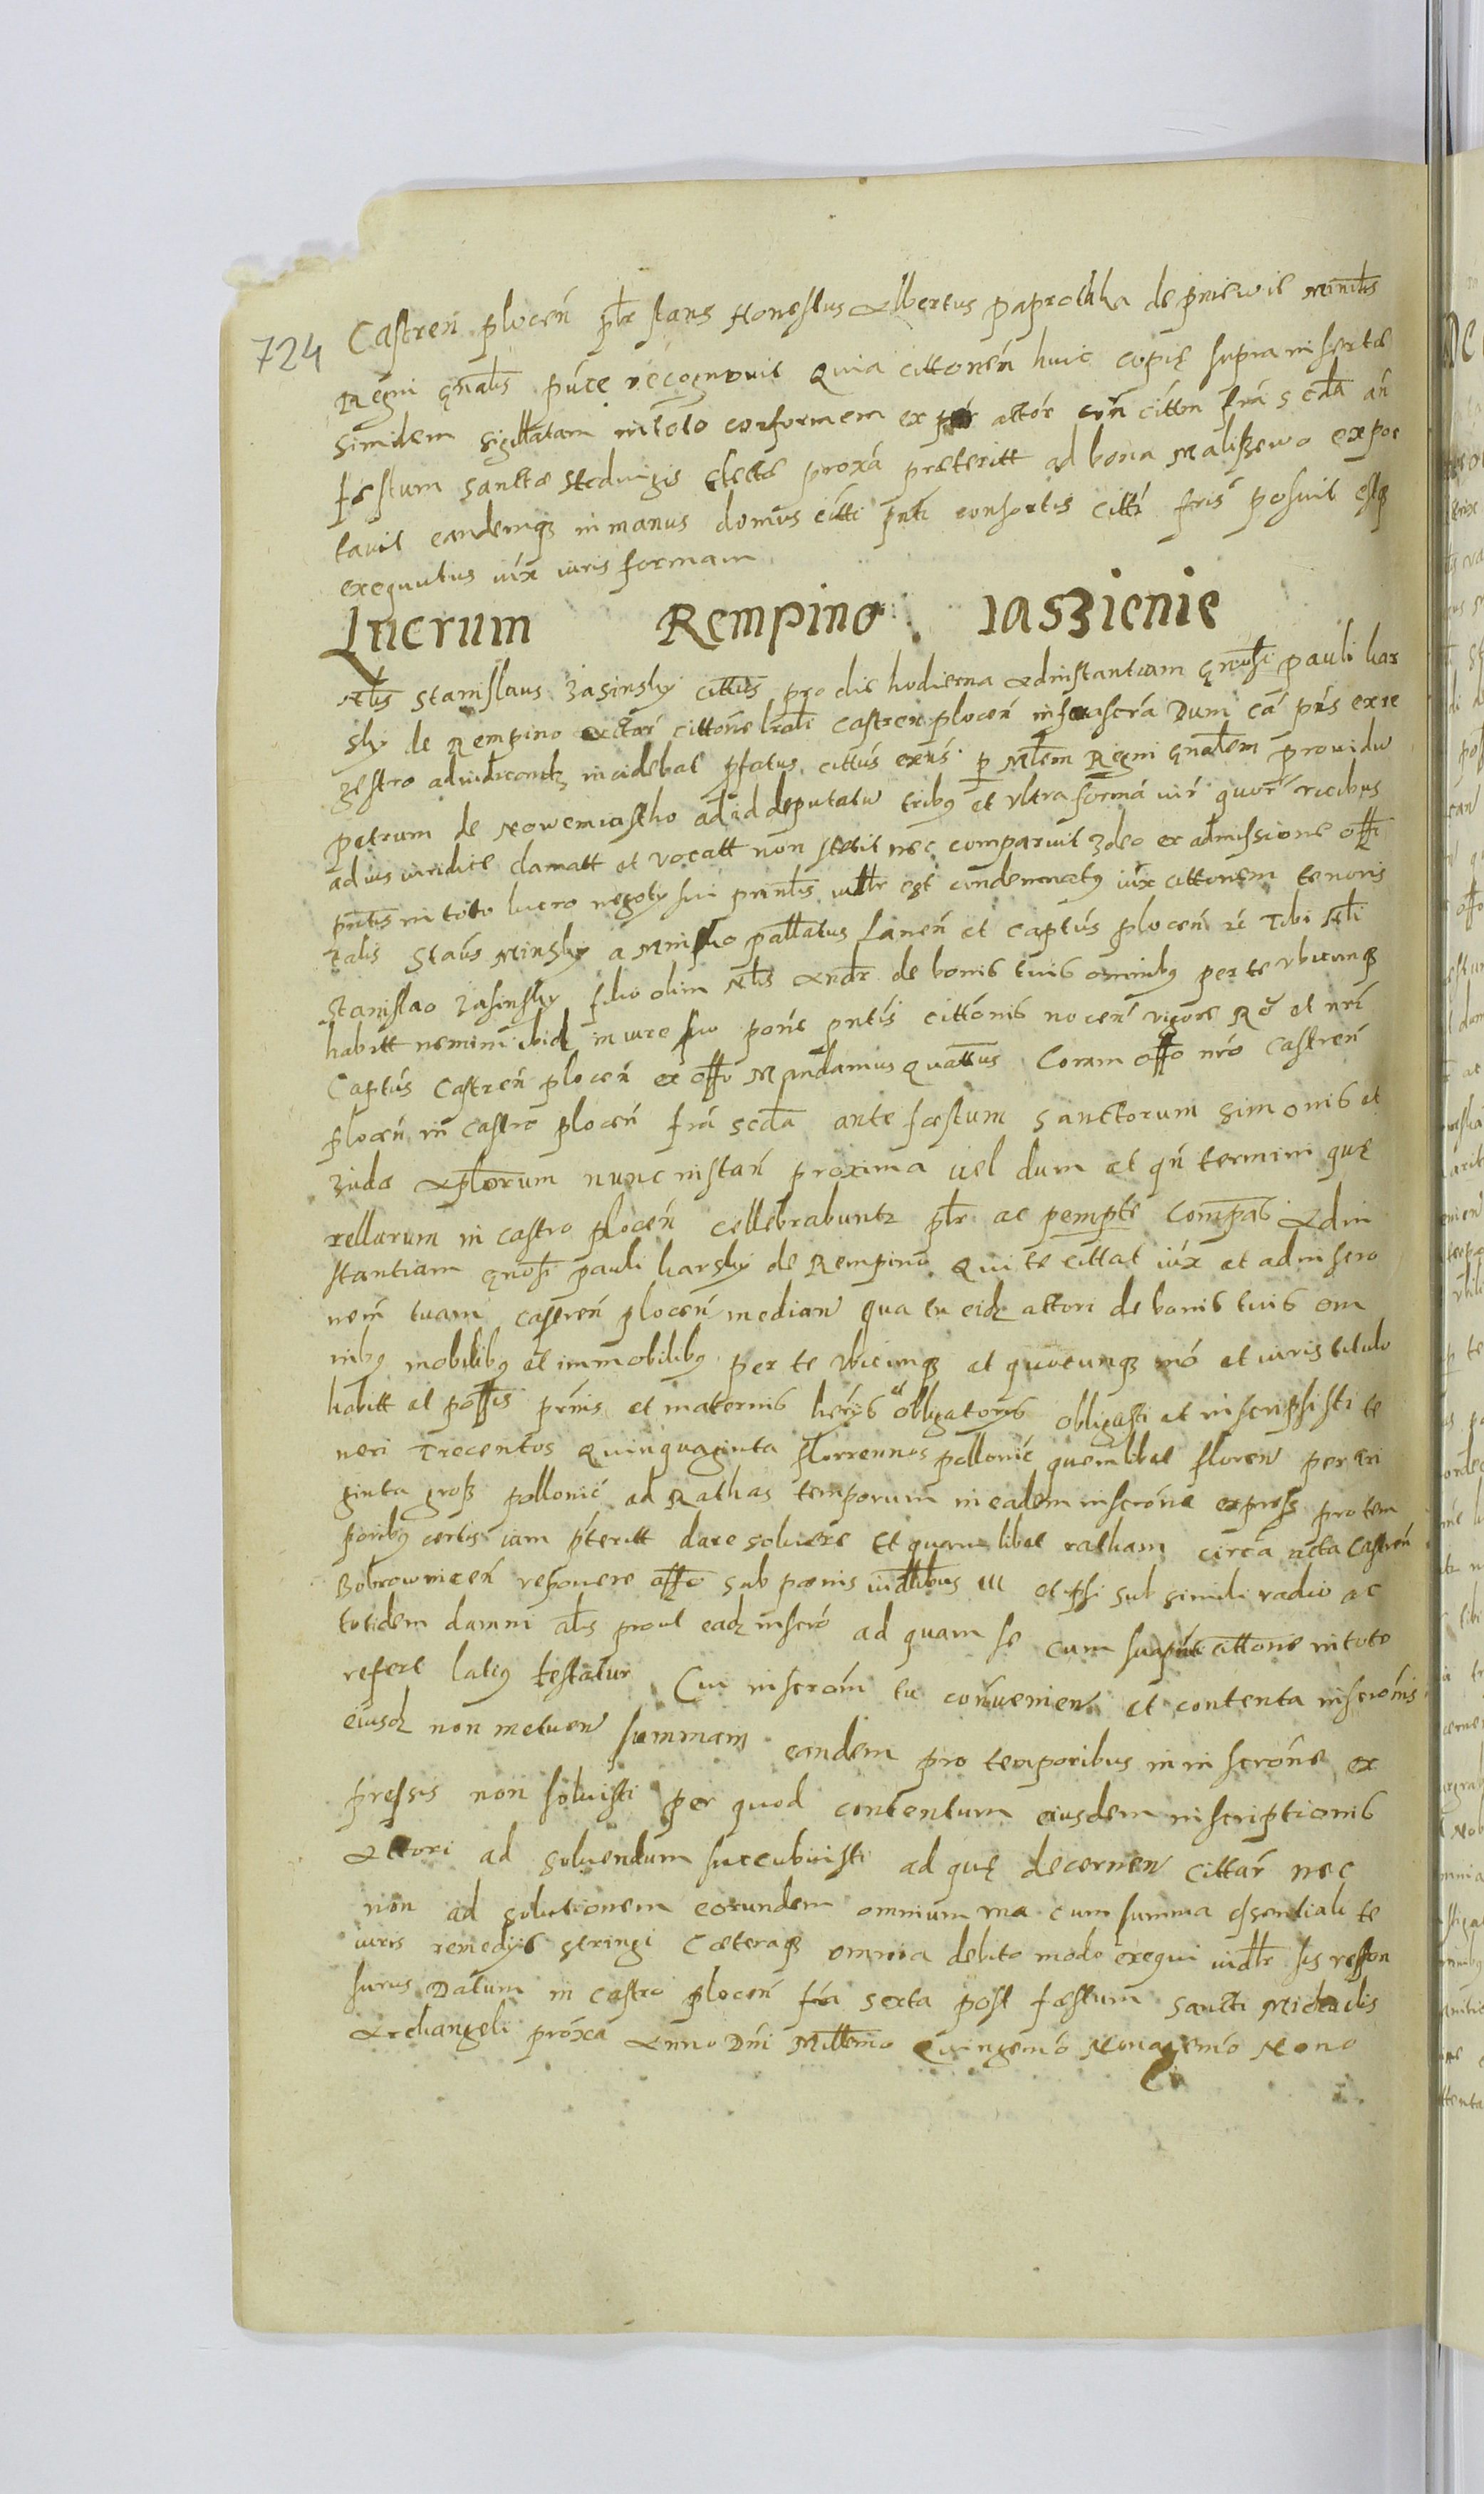 724
Castren plocen plr stans Honestus Albertus paprothka de pniewie Minrlis
Regni gnalis puce recognovit Quia cittonen huic copię supra insertæ
similem sigillatam in toto conformem ex citton fria scda an
festum sanctæ Hedvigis Electæ proxa præteritt ad bona Maliszewo expor
tavit eandemq in manus domus citti consortis citti fris posuit estq
exequutus iux iuris formam
Lucrum Rempino Jaszienie
Nlis Stanislaus Jasinsky cittus pro die hodierna Adinstantiam gnosi pauli kar
sky de Rempino actor cittone lrali castren plocen infrascra Dum ca pns ex re
gestro adiudicandz incidebat pfatus cittus exns p Mlem Regni gnalem providu
petrum de Nowemiastho ad id deputatu tribq et ultra forma iur quor vicibus
ad ius iuridice clamatt et vocatt non stetit nec comparuit Ideo ex admissione offi
pntis in toto lucro negoty sui prinlis iudlr est condemnatq iux cittonem tenoris
talis Staus Minsky a Minsko pallatus Lanen et Captus plocen rc Tibi Nli
Stanislao Jasinsky filio olim Nlis Andr de bonis tuis omnibq per te ubicunq
habitt nemini ibid in iure suo pone pntis cittonis nocen vigore Re et nri
Captus Castren plocen ex offo Mandamus Quattus Coram offo nro Castren
plocen in castro plocen fria scda ante fæstum Sanctorum Simonis et
Judæ Aplorum nunc instan proxima vel dum et qn termini quę
rellarum in castro plocen cellebrabuntz plr ac pempte Compas Adin
stantiam gnosi pauli karsky de Rempino Qui te cittat iux et ad inscro
nem tuam castren plocen median qua tu eidz actori de bonis tuis om
nibq mobilibq et immobilibq per te ubicunq et quocunq mo et iuris titulo
habitt et possis prnis et maternis herijs et obligatorijs obligasti et inscripsisti te
neri Trecentos Quinquaginta florrennos pollonic quemlibet floren per tri
ginta gross pollonic ad Rathas temporum in eadem inscrone express pro tem
poribq certis iam pteritt dare solvere Et quamlibet ratham circa acta Castren
Bobrownicen reponere offo sub pœnis iudlibus III et psi sub simili vadio ac
totidem damni als prout eadz inscro ad quam se cum sua pnti cittone in toto
refert latiq testatur Cui inscroni tu convenien et contenta inscronis
eiusdz non metuen summam eandem pro temporibus in inscrone ex
pressis non solvisti per quod contentum eiusdem inscriptionis
Actori ad solvendum succubuisti ad quę decernen cittar nec
non ad solutionem eorundem omnium una cum summa essentiali te
iuris remedijs stringi Cæteraq omnia debito modo exequi iudlr sis respon
surus Datum in castro plocen fria sexta post fæstum Sancti Michaelis
Archangeli proxa Anno Dni Millemo Quingemo Nonagemo Nono